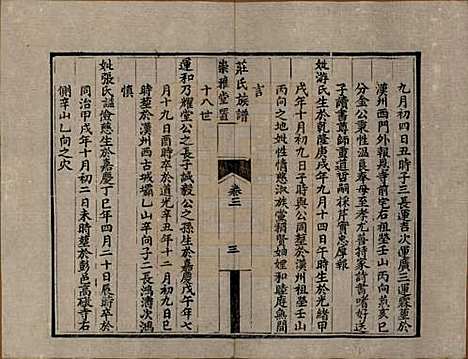 九月初四日丑時子三長運吉次運廣三運霖塟於
漢州西門外報恩寺前宅右祖塋壬山丙向兼亥巳
分金公秉性溫良奉母至孝尤善持家詩書嗜好送
子讀書尊師重道哲嗣採芹實忠厚報
妣游氏生於乾隆庚戌年九月十四日午時於光緒甲
戌年十月初九日子時與公同塟於漢州祖塋壬山
丙向之地妣性情慈淑族黨稱賢妯娌和睦庭無間
言
莊氏族譜
崇雅堂置
卷二
三
十八世
運和乃耀堂公之長子誠毅公之孫生於嘉慶戊午年七
月十九日酉時卒於道光辛丑年十二月初九日巳
時塟於漢州西古城壩乙山辛向子二長鴻濤次鴻
慎
妣張氏諡儉慈生於嘉慶丁巳年四月二十日辰時卒於
同治甲戌年十月初二日未時塟於彭邑高碳寺右
側辛山乙向之穴